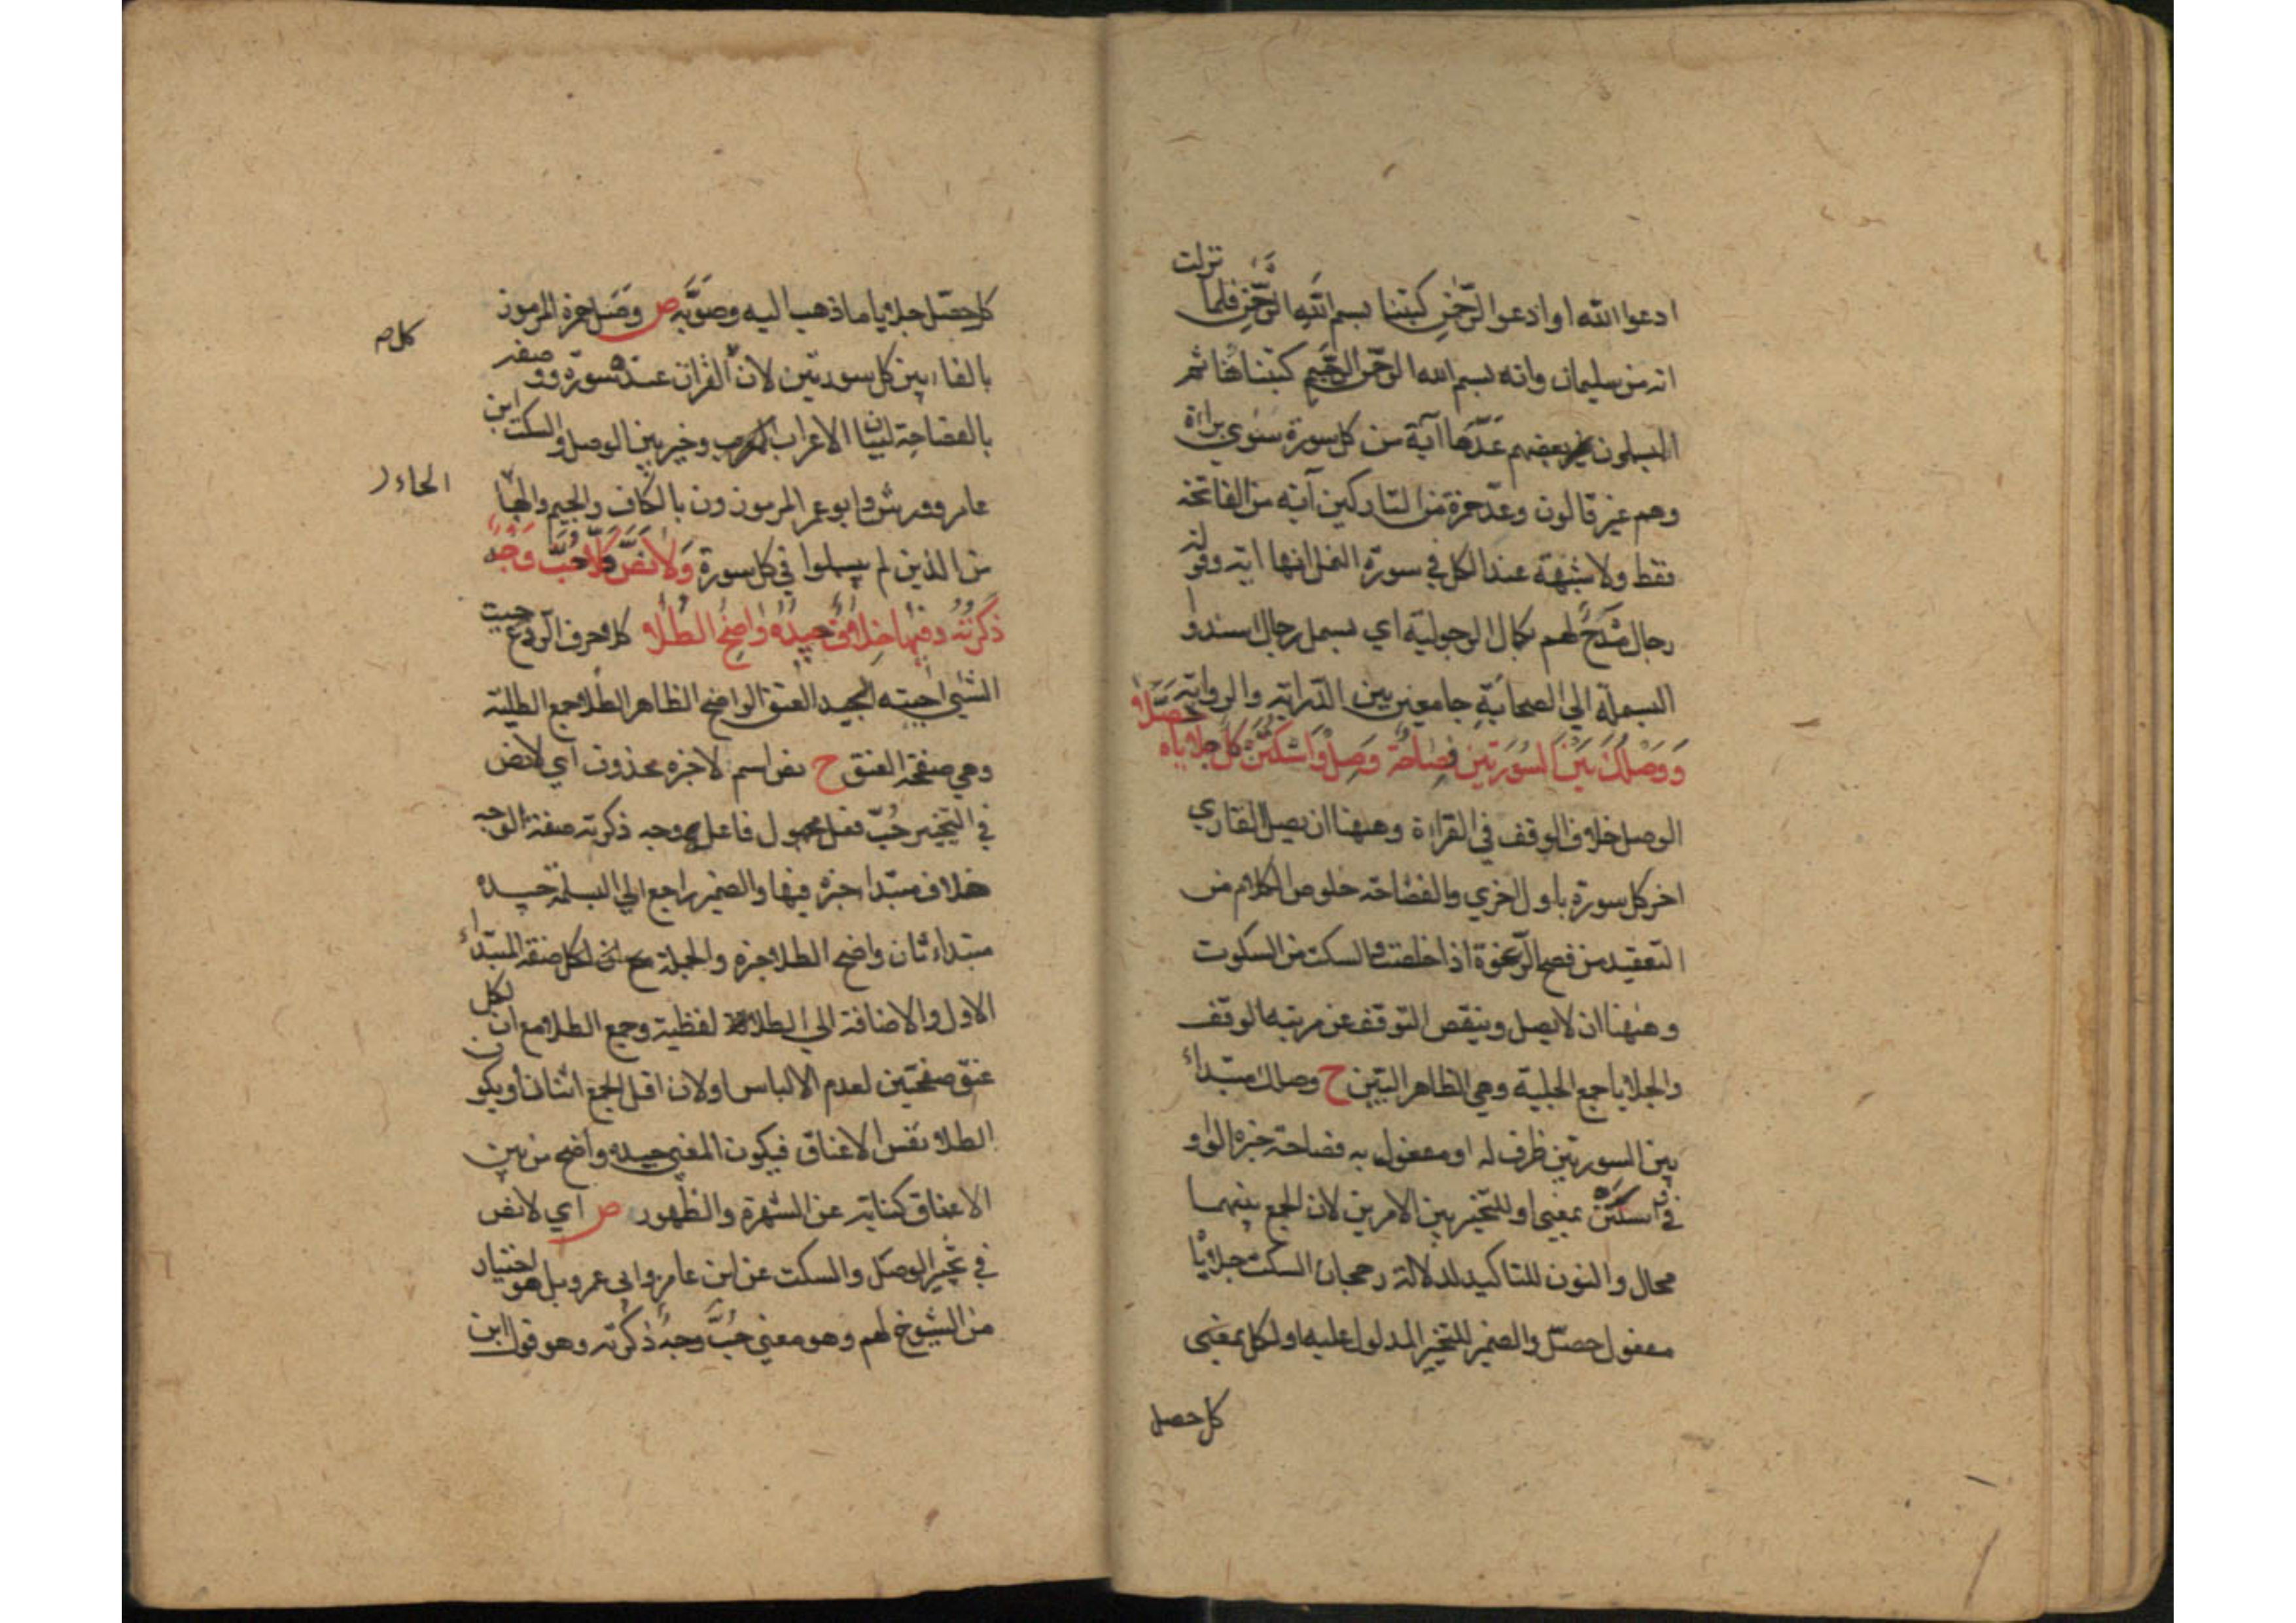 ادعوا الله او ادعوا الرّحمٰن كبتنا بسم الله الرّحمٰن فلما نزلت
انه من سليمان وانه بسم الله الرحمن الرّحيم كتبناها ثم
المبسملون بعضهم عدّها آية من كل سورة سوى براءة
وهم غير قالون وعدّ حمزة من التاركين آية من الفاتحة
فقط ولا شبهة عند الكل في سورة النمل انها اية وقوله
رجال مدحٌ لهم بكمال الرجولية اي بسمل رجال اسندوا
البسملة الي الصحابة جامعين بين الدّراية والرواية
وَوَصْلُكَ بَيْنَ السُّورَتَيْنِ فَصَاحَةٌ وَصِلْ وَاسْكُتَنْ كُلٌّ جَلَايَاهُ حَصَّلَا
الوصل خلاف الوقف في القراءة وههنا ان يصل القاري
اخر كل سورة باول اخري والفصاحة خلوص الكلام من
التعقيد من فصح الرّغوة اذا خلصت والسكت من السكوت
وههنا ان لا يصل وينقص التوقف عن مرتبة الوقف
والجلايا جمع الجلية وهي الظاهر البيّن ح وصلك مبتدأ
بين السورتين ظرف له او مفعول به فصاحة خبره الواو
في اسكتن بمعنى او للتخيير بين الامرين لان الجمع بينهما
محال والنون للتاكيد لدلالة رجحان السكت جلايا
مفعول حصّل والضمير للتخيير المدلول عليه او لكل بمعنى
كل حصل
كل حصّل جلايا ما ذهب اليه وصوّبه ص وصل حمزة المرموز
بالفاء بين كل سورتين لان القران عنده سورة ووصفه
بالفصاحة لبيان الاعراب وخير بين الوصل والسكت ابن
عامر وورش وابو عمر المرموزون بالكاف والجيم والحا
من الذين لم يبسملوا في كل سورة وَلَا نَصَّ كَلَّا حُبَّ وَجْهٌ
ذَكَرْتُهُ وَفِيهَا خِلَافٌ جِيدُهُ وَاضِحُ الطُّلَا كلا حرف الردع حببت
الشيئ احببته الجيد العنق الواضح الظاهر الطلا جمع الطلية
وهي صفحة العنق ح نص اسم لا خبره محذوف اي لا نص
في التخيير حُبّ فعل مجهول فاعله وجه ذكرته صفة الوجه
خلاف مبتدا خبره فيها والضمير راجع الي البسملة جيده
مبتداء ثان واضح الطلا خبره والجملة صفة المبتداء
الاول والاضافة الي الطلا لفظية وجمع الطلا مع ان لكل
عنق صفحتين لعدم الالباس او لان اقل الجمع اثنان او يكون
الطلا نفس الاعناق فيكون المعني جيده واضح من بين
الاعناق كناية عن الشهرة والظهور ص اي لا نص
في تخيير الوصل والسكت عن ابن عامر وابى عمرو بل هو اختيار
من الشيوخ لهم وهو معني حُبَّ وجهٌ ذكرته وهو قول ابن